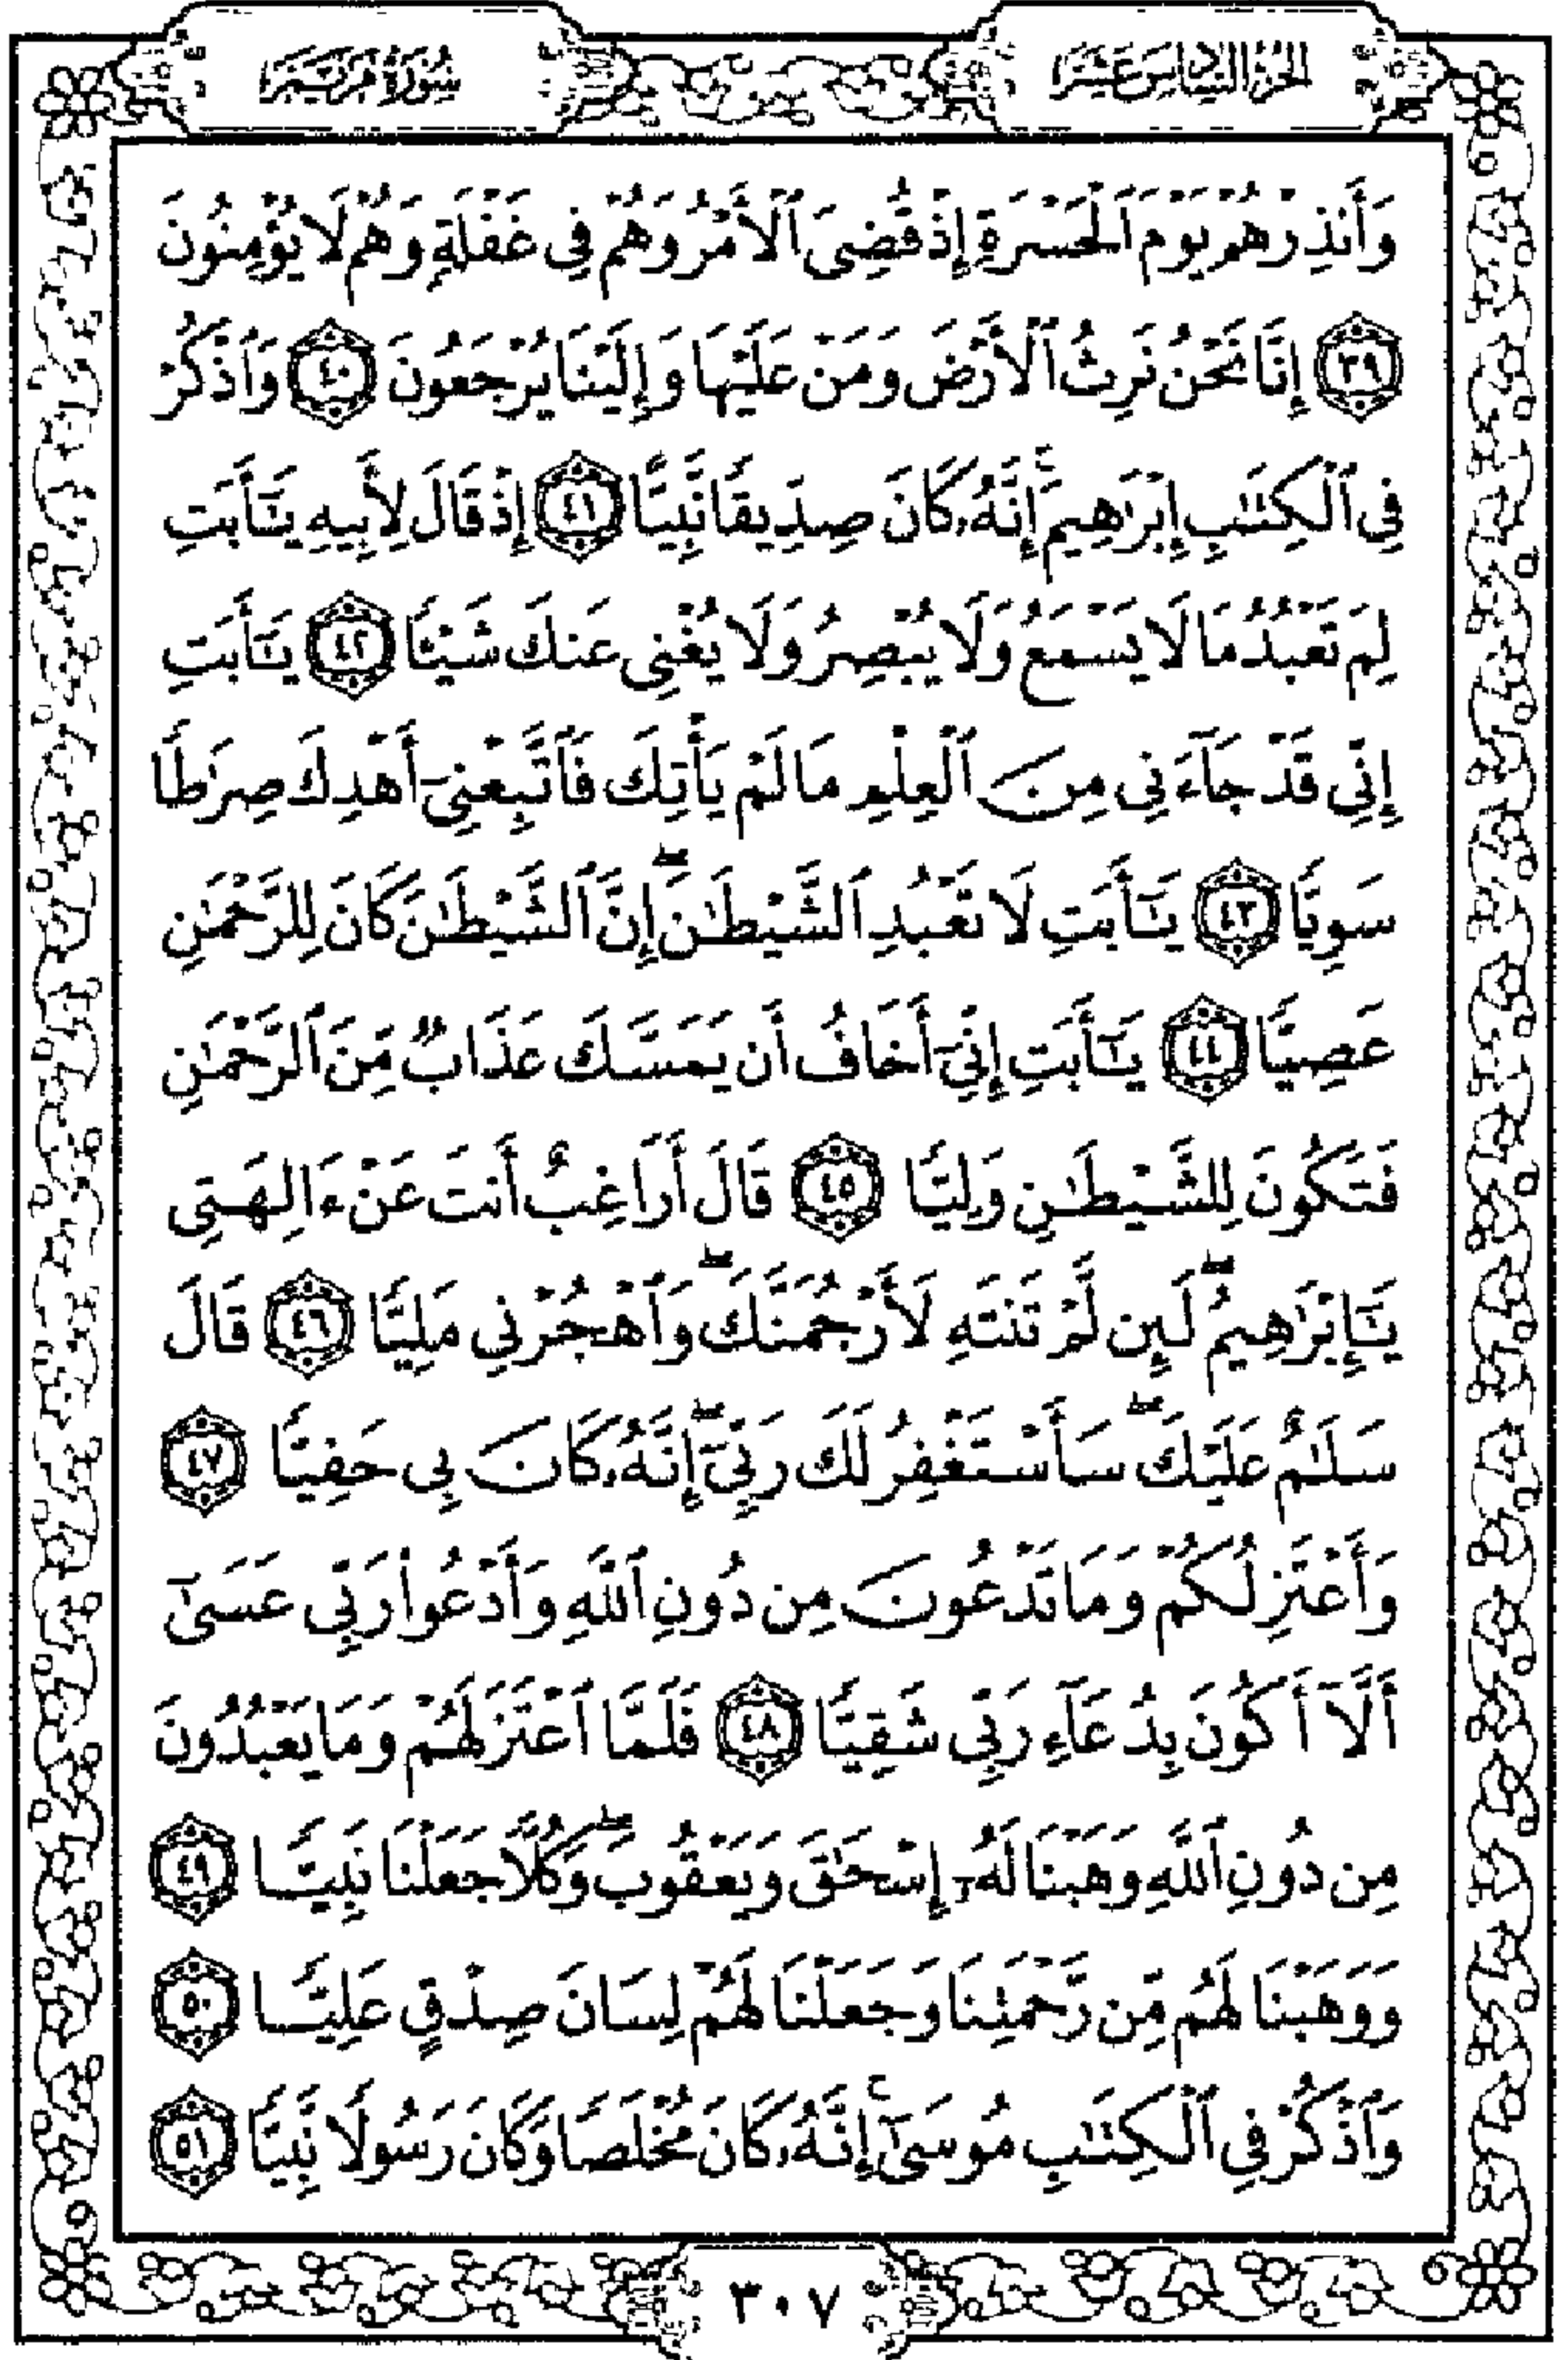 الجزء السادس عشر
سورة مريم
وَأَنذِرْهُمْ يَوْمَ ٱلْحَسْرَةِ إِذْ قُضِىَ ٱلْأَمْرُ وَهُمْ فِى غَفْلَةٍ وَهُمْ لَا يُؤْمِنُونَ
٣٩ إِنَّا نَحْنُ نَرِثُ ٱلْأَرْضَ وَمَنْ عَلَيْهَا وَإِلَيْنَا يُرْجَعُونَ ٤٠ وَٱذْكُرْ
فِى ٱلْكِتَٰبِ إِبْرَٰهِيمَ ۚ إِنَّهُۥ كَانَ صِدِّيقًا نَّبِيًّا ٤١ إِذْ قَالَ لِأَبِيهِ يَٰٓأَبَتِ
لِمَ تَعْبُدُ مَا لَا يَسْمَعُ وَلَا يُبْصِرُ وَلَا يُغْنِى عَنكَ شَيْـًٔا ٤٢ يَٰٓأَبَتِ
إِنِّى قَدْ جَآءَنِى مِنَ ٱلْعِلْمِ مَا لَمْ يَأْتِكَ فَٱتَّبِعْنِىٓ أَهْدِكَ صِرَٰطًا
سَوِيًّا ٤٣ يَٰٓأَبَتِ لَا تَعْبُدِ ٱلشَّيْطَٰنَ ۖ إِنَّ ٱلشَّيْطَٰنَ كَانَ لِلرَّحْمَٰنِ
عَصِيًّا ٤٤ يَٰٓأَبَتِ إِنِّىٓ أَخَافُ أَن يَمَسَّكَ عَذَابٌ مِّنَ ٱلرَّحْمَٰنِ
فَتَكُونَ لِلشَّيْطَٰنِ وَلِيًّا ٤٥ قَالَ أَرَاغِبٌ أَنتَ عَنْ ءَالِهَتِى
يَٰٓإِبْرَٰهِيمُ ۖ لَئِن لَّمْ تَنتَهِ لَأَرْجُمَنَّكَ ۖ وَٱهْجُرْنِى مَلِيًّا ٤٦ قَالَ
سَلَٰمٌ عَلَيْكَ ۖ سَأَسْتَغْفِرُ لَكَ رَبِّىٓ ۖ إِنَّهُۥ كَانَ بِى حَفِيًّا ٤٧
وَأَعْتَزِلُكُمْ وَمَا تَدْعُونَ مِن دُونِ ٱللَّهِ وَأَدْعُوا۟ رَبِّى عَسَىٰٓ
أَلَّآ أَكُونَ بِدُعَآءِ رَبِّى شَقِيًّا ٤٨ فَلَمَّا ٱعْتَزَلَهُمْ وَمَا يَعْبُدُونَ
مِن دُونِ ٱللَّهِ وَهَبْنَا لَهُۥٓ إِسْحَٰقَ وَيَعْقُوبَ ۖ وَكُلًّا جَعَلْنَا نَبِيًّا ٤٩
وَوَهَبْنَا لَهُم مِّن رَّحْمَتِنَا وَجَعَلْنَا لَهُمْ لِسَانَ صِدْقٍ عَلِيًّا ٥٠
وَٱذْكُرْ فِى ٱلْكِتَٰبِ مُوسَىٰٓ ۚ إِنَّهُۥ كَانَ مُخْلَصًا وَكَانَ رَسُولًا نَّبِيًّا ٥١
٣٠٧